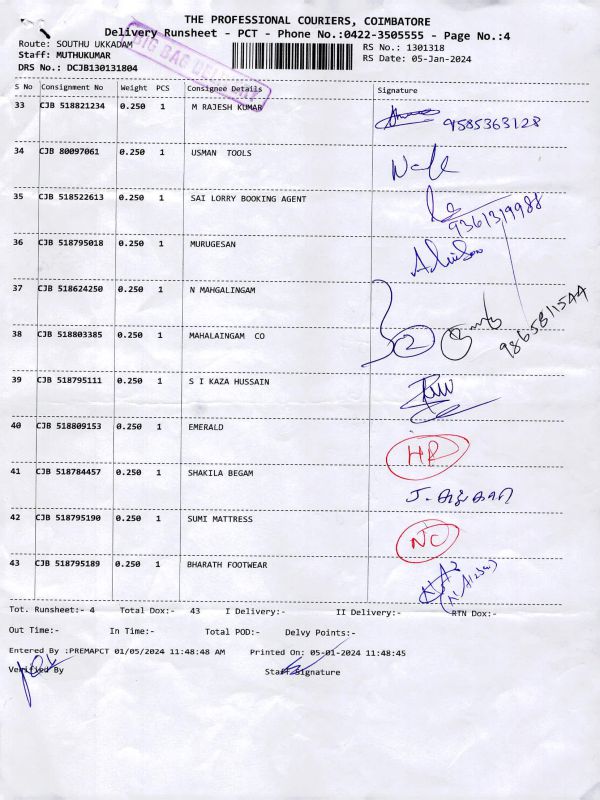 THE PROFESSIONAL COURIERS, COIMBATORE
Delivery Runsheet - PCT - Phone No.:0422-3505555 - Page No.:4
Route: SOUTHU UKKADAM
RS No.: 1301318
Staff: MUTHUKUMAR
RS Date: 05-Jan-2024
DRS No.: DCJB130131804
BIG BAG
S No Consignment No Weight PCS Consignee Details Signature
33 CJB 518821234 0.250 1 M RAJESH KUMAR 9585363128
34 CJB 80097061 0.250 1 USMAN TOOLS
35 CJB 518522613 0.250 1 SAI LORRY BOOKING AGENT
9361319988
36 CJB 518795018 0.250 1 MURUGESAN
37 CJB 518624250 0.250 1 N MAHGALINGAM
38 CJB 518803385 0.250 1 MAHALAINGAM CO 2 9865811544
39 CJB 518795111 0.250 1 S I KAZA HUSSAIN
40 CJB 518809153 0.250 1 EMERALD HR
41 CJB 518784457 0.250 1 SHAKILA BEGAM
42 CJB 518795190 0.250 1 SUMI MATTRESS NC
43 CJB 518795189 0.250 1 BHARATH FOOTWEAR
Tot. Runsheet:- 4 Total Dox:- 43 I Delivery:- II Delivery:- RTN Dox:-
Out Time:- In Time:- Total POD:- Delvy Points:-
Entered By :PREMAPCT 01/05/2024 11:48:48 AM Printed On: 05-01-2024 11:48:45
Verified By Staff Signature